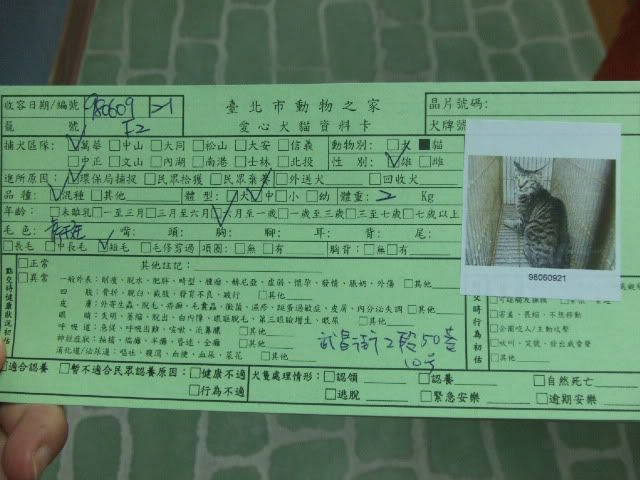 收容日期/編號 980609 21
臺北市動物之家
愛心犬貓資料卡
晶片號碼:
籠 號 F2
犬牌號
捕犬區隊: ☑萬華 □中山 □大同 □松山 □大安 □信義 動物別: □犬 ■貓
□中正 □文山 □內湖 □南港 □士林 □北投 性 別: ☑雄 □雌
進所原因: ☑環保局捕捉 □民眾拾獲 □民眾棄養 □外送犬 □回收犬
品 種: ☑混種 □其他 體 型: □大 ☑中 □小 □幼 體重: 2 Kg
年齡: □未離乳 □一至三月 □三月至六月 ☑六月至一歲 □一歲至三歲 □三至七歲 □七歲以上
毛 色: 嘴: 頭: 胸: 腳: 背: 尾:
□長毛 □半長毛 ☑短毛 □毛修剪過 項圈: □無 □有 胸背: □無 □有
98060921
點交時健康狀況初估
□正常 其他註記:
□異常
一般外表: 削瘦、脫水、肥胖、時型、腫瘤、赫尼亞、虛弱、懷孕、發情、脹奶、外傷 □其他
四 肢: 骨折、脫臼、截肢、發育不良、跛行 □其他
皮 膚: 外寄生蟲、脫毛、疥癬、毛囊蟲、黴菌、濕疹、跳蚤過敏症、皮屑、內分泌失調 □其他
眼 睛: 失明、萎縮、脫出、白內障、眼瞼脫毛、第三眼瞼增生、眼屎 □其他
呼 吸 道: 急促、呼吸困難、咳嗽、流鼻膿 □其他
神經症狀: 抽搐、癲癇、半癱、昏迷、全癱 □其他
消化道/泌尿道: 嘔吐、腹瀉、血便、血尿、菜花 □其他
武昌街2段50巷
10号
交時行為初估
□害羞、畏縮、不想移動
□企圖咬人/主動攻擊
□吠叫、哭號、發出威脅聲
□其他
□適合認養 □暫不適合民眾認養原因: □健康不適
□行為不適
犬隻處理情形: □認領 □認養 □自然死亡
□逃脫 □緊急安樂 □逾期安樂